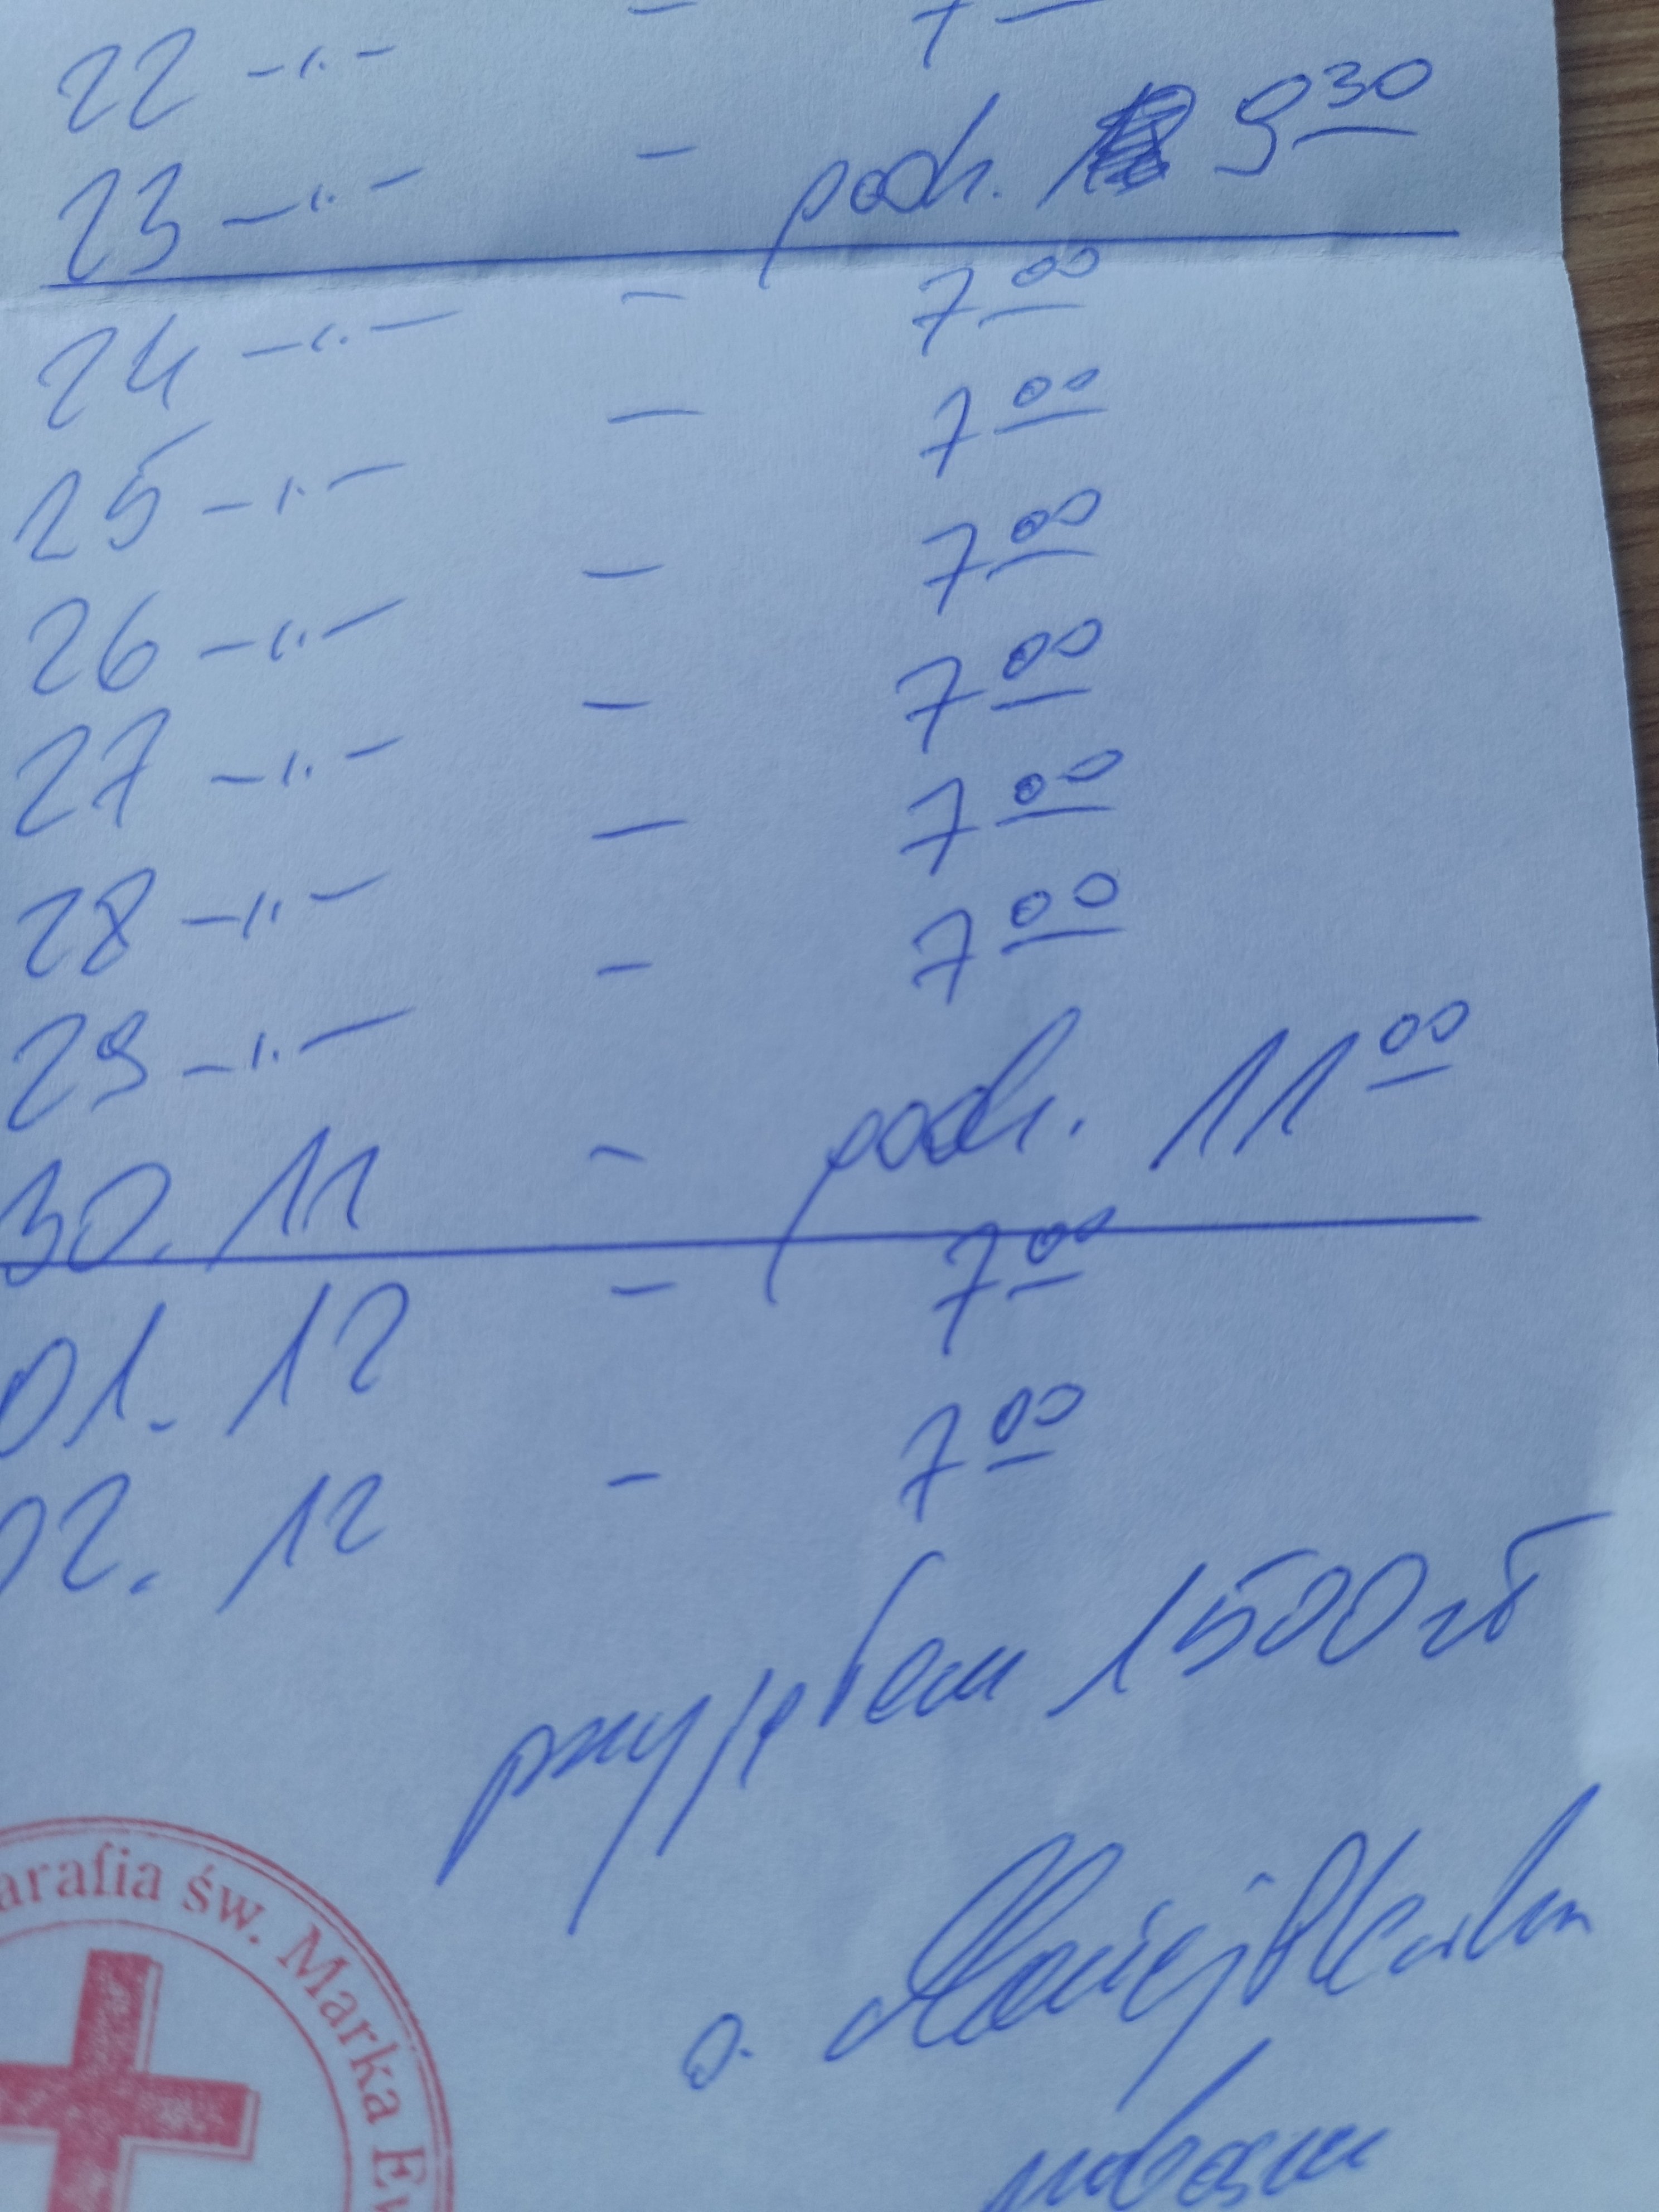 22 -"- - 7
23 -"- - poch. 9 30
24 -"- - 7 00
25 -"- - 7 00
26 -"- - 7 00
27 -"- - 7 00
28 -"- - 7 00
29 -"- - 7 00
30. 11 - poch. 11 00
01. 12 - 7 00
02. 12 - 7 00
przyjąłem 1500 zł
o. Maciej
arafia św. Marka Ew